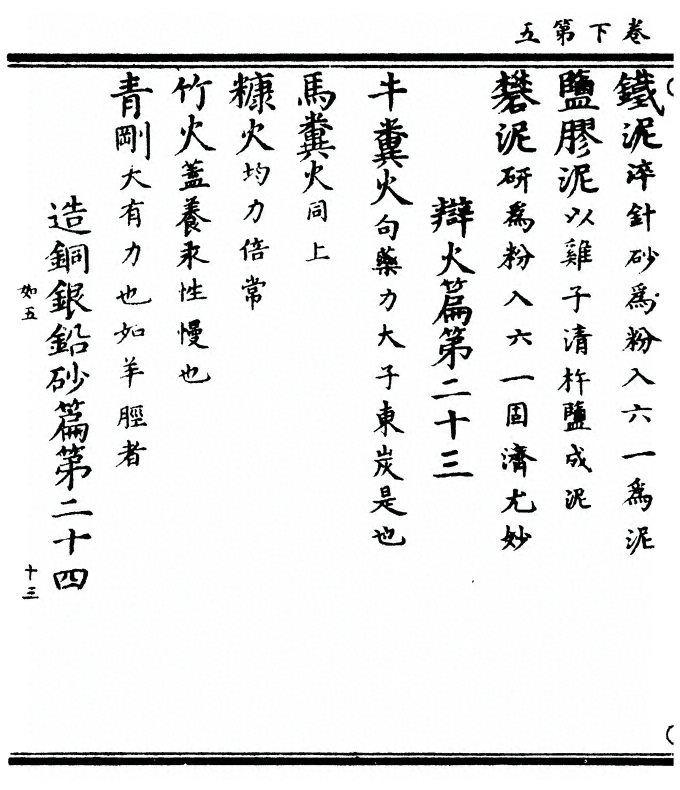 卷下第五
鐵泥淬針砂爲粉入六一爲泥
鹽膠泥以雞子清杵鹽成泥
礬泥研爲粉入六一固濟尤妙
辯火篇第二十三
牛糞火句藥力大子東炭是也
馬糞火同上
糠火均力倍常
竹火蓋養汞性慢也
青剛大有力也如羊脛者
造銅銀鉛砂篇第二十四
如五
十三